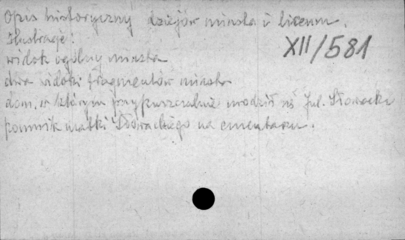 Opis historyczny dziejów miasta i liceum.
Ilustracje:
XII/581
widok ogólny miasta
dwa widoki fragmentów miasta
dom, w którym przypuszczalnie urodził się Jul. Słowacki
pomnik matki Słowackiego na cmentarzu.